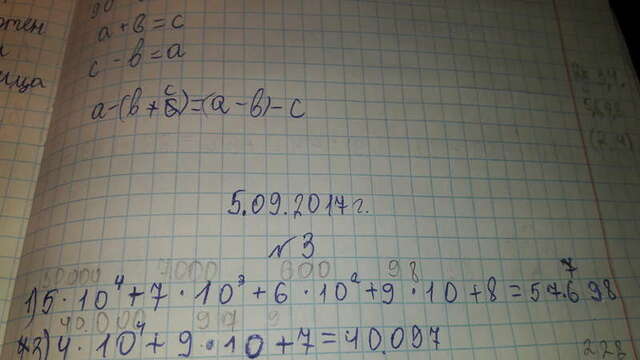 90
a + в = c
c - в = a
a-(в+c)=(a-в)-c
5.09.2017г.
№3
50000 7000 600 98
7
1) 5·10⁴+7·10³+6·10²+9·10+8=57.698
40.000 97
3) 4·10⁴+9·10+7=40.097
228